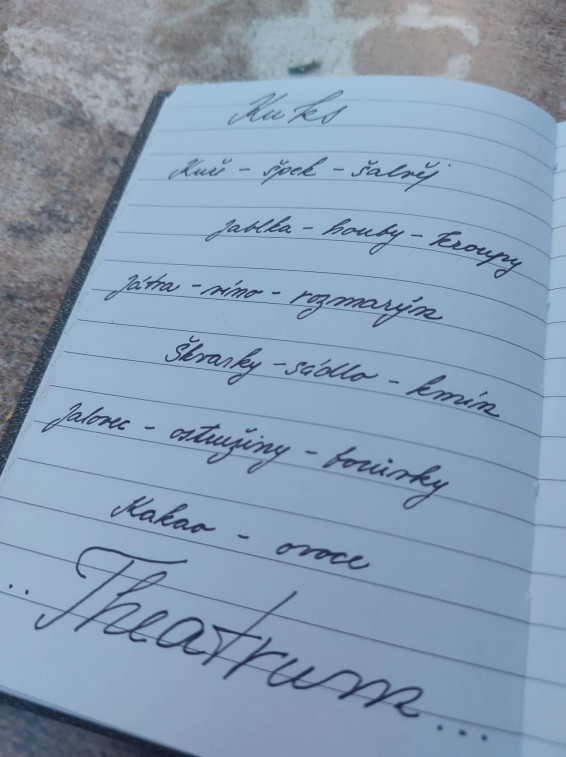 Kuks
Kuře - špek - šalvěj
Jablka - houby - kroupy
Játra - víno - rozmarýn
Škvarky - sádlo - kmín
Jalovec - ostružiny - borůvky
Kakao - ovoce
..Theatrum...